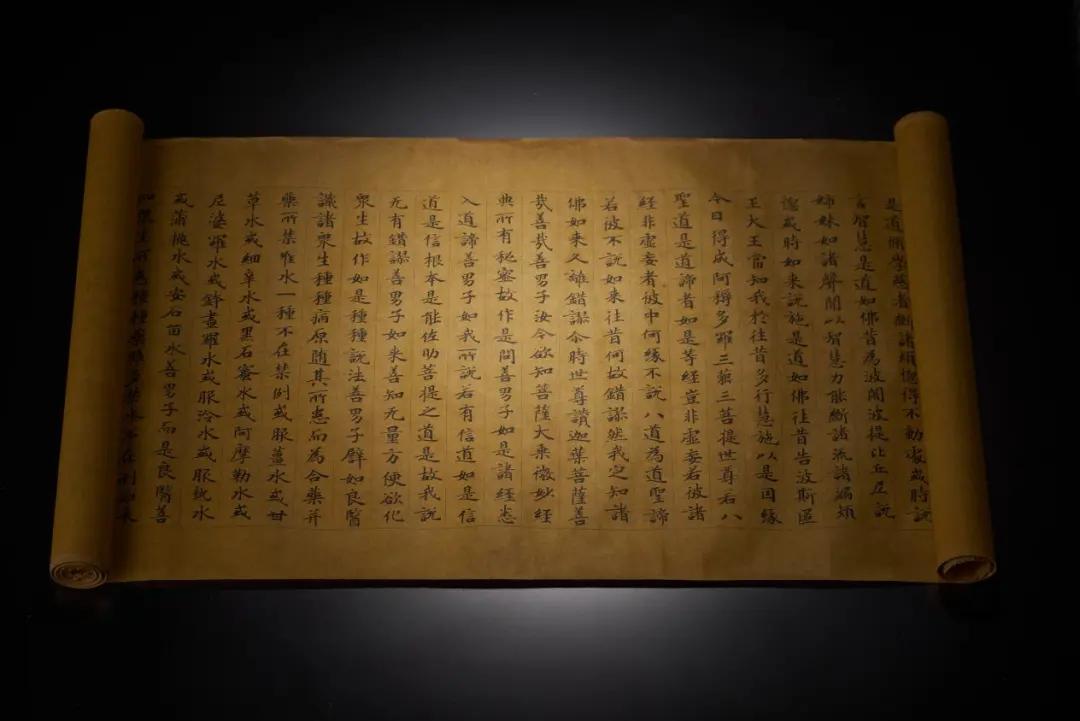 是道修學慈者斷諸煩惱得不動處或時說
言智慧是道如佛昔為波闍波提比丘尼說
姉妹如諸聲聞以智慧力能斷諸流諸漏煩
惱或時如來說施是道如佛往昔告波斯匿
王大王當知我於往昔多行慧施以是因緣
今日得成阿耨多羅三藐三菩提世尊若八
聖道是道諦者如是等經豈非虛妄若彼諸
經非虛妄者彼中何緣不說八道為道聖諦
若彼不說如來往昔何故錯謬然我定知諸
佛如來久離錯謬尒時世尊讚迦葉菩薩善
哉善哉善男子汝今欲知菩薩大乘微妙經
典所有秘密故作是問善男子如是諸經悉
入道諦善男子如我所說若有信道如是信
道是信根本是能佐助菩提之道是故我說
无有錯謬善男子如来善知无量方便欲化
眾生故作如是種種說法善男子譬如良醫
識諸眾生種種病原隨其所患而為合藥并
藥所禁唯水一種不在禁例或服薑水或甘
草水或細辛水或黑石蜜水或阿摩勒水或
尼婆羅水或鉢晝羅水或服冷水或服熱水
或蒲桃水或安石苗水善男子而是良醫善
知眾生所患種種藥雖多禁水不在例如来